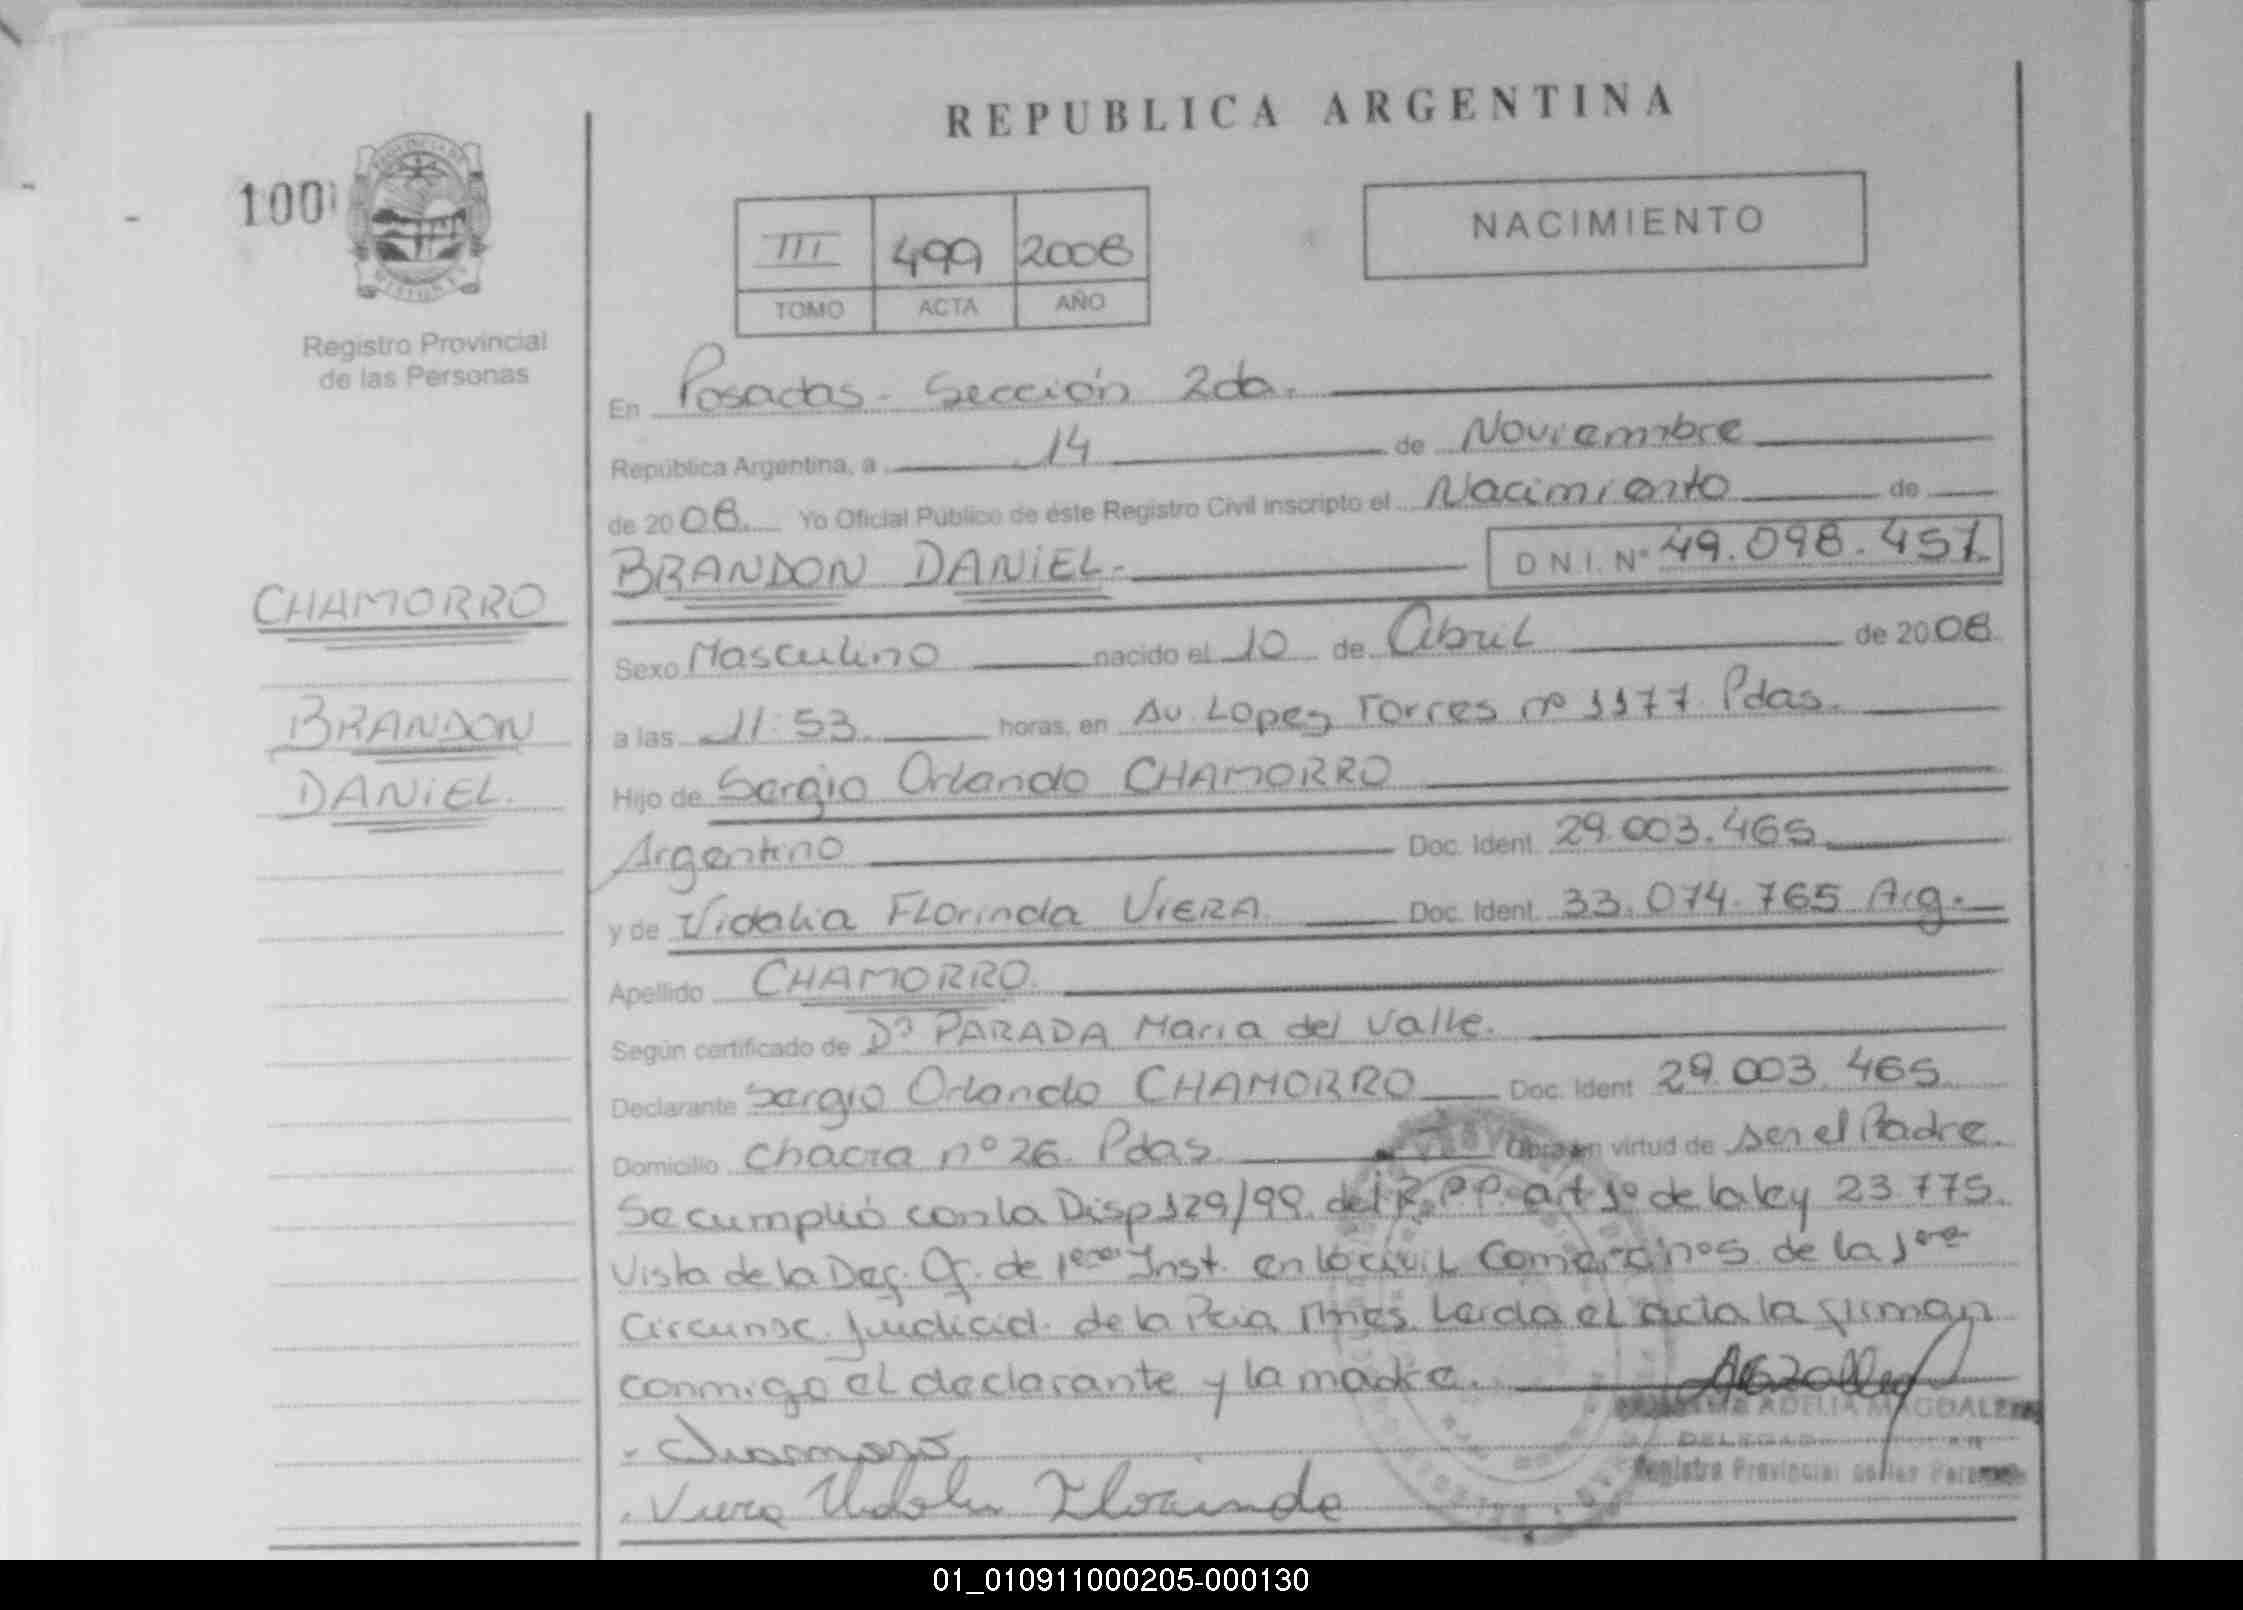 REPUBLICA ARGENTINA
100
NACIMIENTO
III 499 2008
TOMO ACTA AÑO
Registro Provincial
de las Personas
En Posadas - Sección 2da.
República Argentina, a 14 de Noviembre
de 2008. Yo Oficial Público de éste Registro Civil inscripto el Nacimiento de
BRANDON DANIEL. D N.I. Nº 49.098.457
CHAMORRO
BRANDON
DANIEL.
Sexo Masculino nacido el 10 de Abril de 2008
a las 11:53 horas, en Av. Lopez Torres nº 1177 Pdas.
Hijo de Sergio Orlando CHAMORRO
Argentino Doc. Ident. 29.003.465
y de Vidalia Florinda VIERA Doc. Ident. 33.074.765 Arg.
Apellido CHAMORRO.
Según certificado de Dª PARADA Maria del Valle.
Declarante Sergio Orlando CHAMORRO Doc. Ident 29.003.465
Domicilio chacra nº 26. Pdas. Obra en virtud de ser el Padre.
Se cumplió con la Disp 129/99 del R.P.P. art 1º de la ley 23.775.
Vista de la Def. Of. de 1era Inst. en lo civil Comer. de la 1era
Circunsc. Judicial. de la Pcia Mnes. Leida el acta la firman
conmigo el declarante y la madre.
ADELIA MAGDALENA
Registro Provincial de las Personas
Chamorro
Viera Vidalia Florinda
01_010911000205-000130